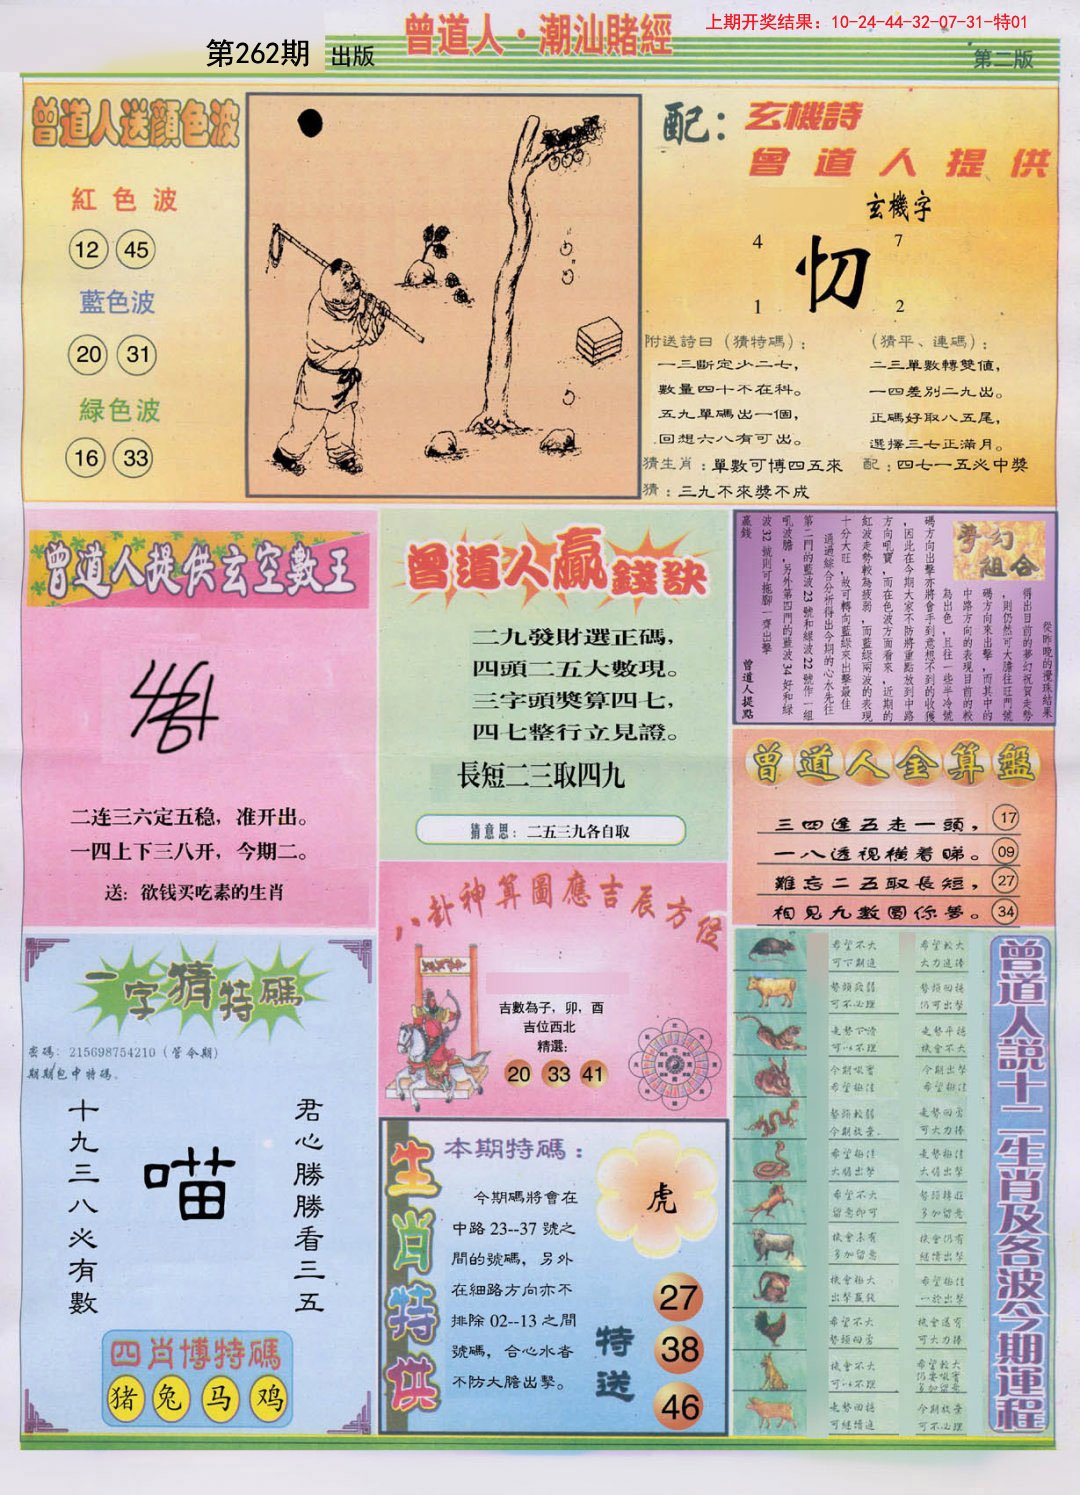 上期开奖结果：10-24-44-32-07-31-特01
第262期 出版
曾道人·潮汕賭經
第二版
曾道人送顔色波
紅色波
12 45
藍色波
20 31
緑色波
16 33
配：玄機詩
曾道人提供
玄機字
4 7
忉
1 2
附送詩曰（猜特碼）：
一三斷定少二七，
數量四十不在科。
五九單碼出一個，
回想六八有可出。
（猜平、連碼）：
二三單數轉雙値，
一四差別二九出。
正碼好取八五尾，
選擇三七正滿月。
猜生肖：單數可博四五來
配：四七一五必中獎
猜：三九不來獎不成
曾道人提供玄空數王
二连三六定五稳，准开出。
一四上下三八开，今期二。
送：欲钱买吃素的生肖
曾道人贏錢訣
二九發財選正碼，
四頭二五大數現。
三字頭獎算四七，
四七整行立見證。
長短二三取四九
猜意思：二五三九各自取
夢幻組合
從昨晚的攪珠結果
得出目前的夢幻祝賀走勢
，則仍然可大膽往旺門號
碼方向來出擊，而其中的
中路方向的表現目前的較
為出色，且往一些半冷號
碼方向出擊亦將會手到意想不到的收獲
，因此在今期大家不防將重點放到中路
方向吼寶，而在色波方面看來，近期的
紅波走勢較為疲弱，而藍綠兩波的表現
十分大旺，故可轉向藍綠來出擊最佳
通過綜合分析得出今期的心水先往
第二門的藍波23號和綠波22號作一組
吼波膽，另外第四門的藍波34好和綠
波32號則可拖腳一齊出擊
贏錢
曾道人提點
曾道人金算盤
三四逢五走一頭， 17
一八透視橫着睇。 09
難忘二五取長短， 27
相見九數圓你夢。 34
八卦神算圖應吉辰方位
吉數為子，卯，酉
吉位西北
精選：
20 33 41
一字猜特碼
密碼：215698754210（管令期）
期期包中特碼。
十九三八必有數
喵
君心勝勝看三五
四肖博特碼
猪 兔 马 鸡
生肖特供
本期特碼：
今期碼將會在
中路23--37號之
間的號碼，另外
在細路方向亦不
排除02--13之間
號碼，合心水者
不防大膽出擊。
虎
特送
27
38
46
曾道人說十二生肖及各波今期運程
希望不大
可下期進
希望較大
大力進捧
可不必理
仍可出擊
可以不理
機會不大
今期出擊
今期放棄。
可大力捧
大膽出擊
大膽出擊
希望不大
留意即可
多加留意
機會未有
多加留意
機會仍有
繼續出擊
機會極大
出擊贏錢
希望極佳
一於出擊
希望不大
機會還有
可大力捧
機會不大
可以不理
希望較大
多加留意
走勢回穩
可繼續進
今期放棄
可不必理